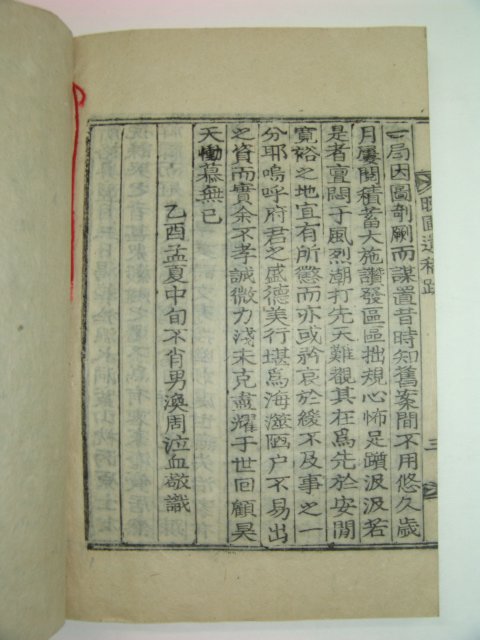 晚圃遺稿跋
三
一局因圖剞劂而謀置昔時知舊案間不用悠久歲
月屢閱積蓄大施讚發區區拙規心怖足躓汲汲若
是者亶閟于風烈潮打先天難觀其在爲先於安閒
寬裕之地宜有所懲而亦或矜哀於後不及事之一
分耶嗚呼府君之盛德美行堪爲海澨陋户不易出
之資而實余不孝誠微力淺未克盡耀于世回顧昊
天慟慕無已
乙酉孟夏中旬不肖男渙周泣血敬識